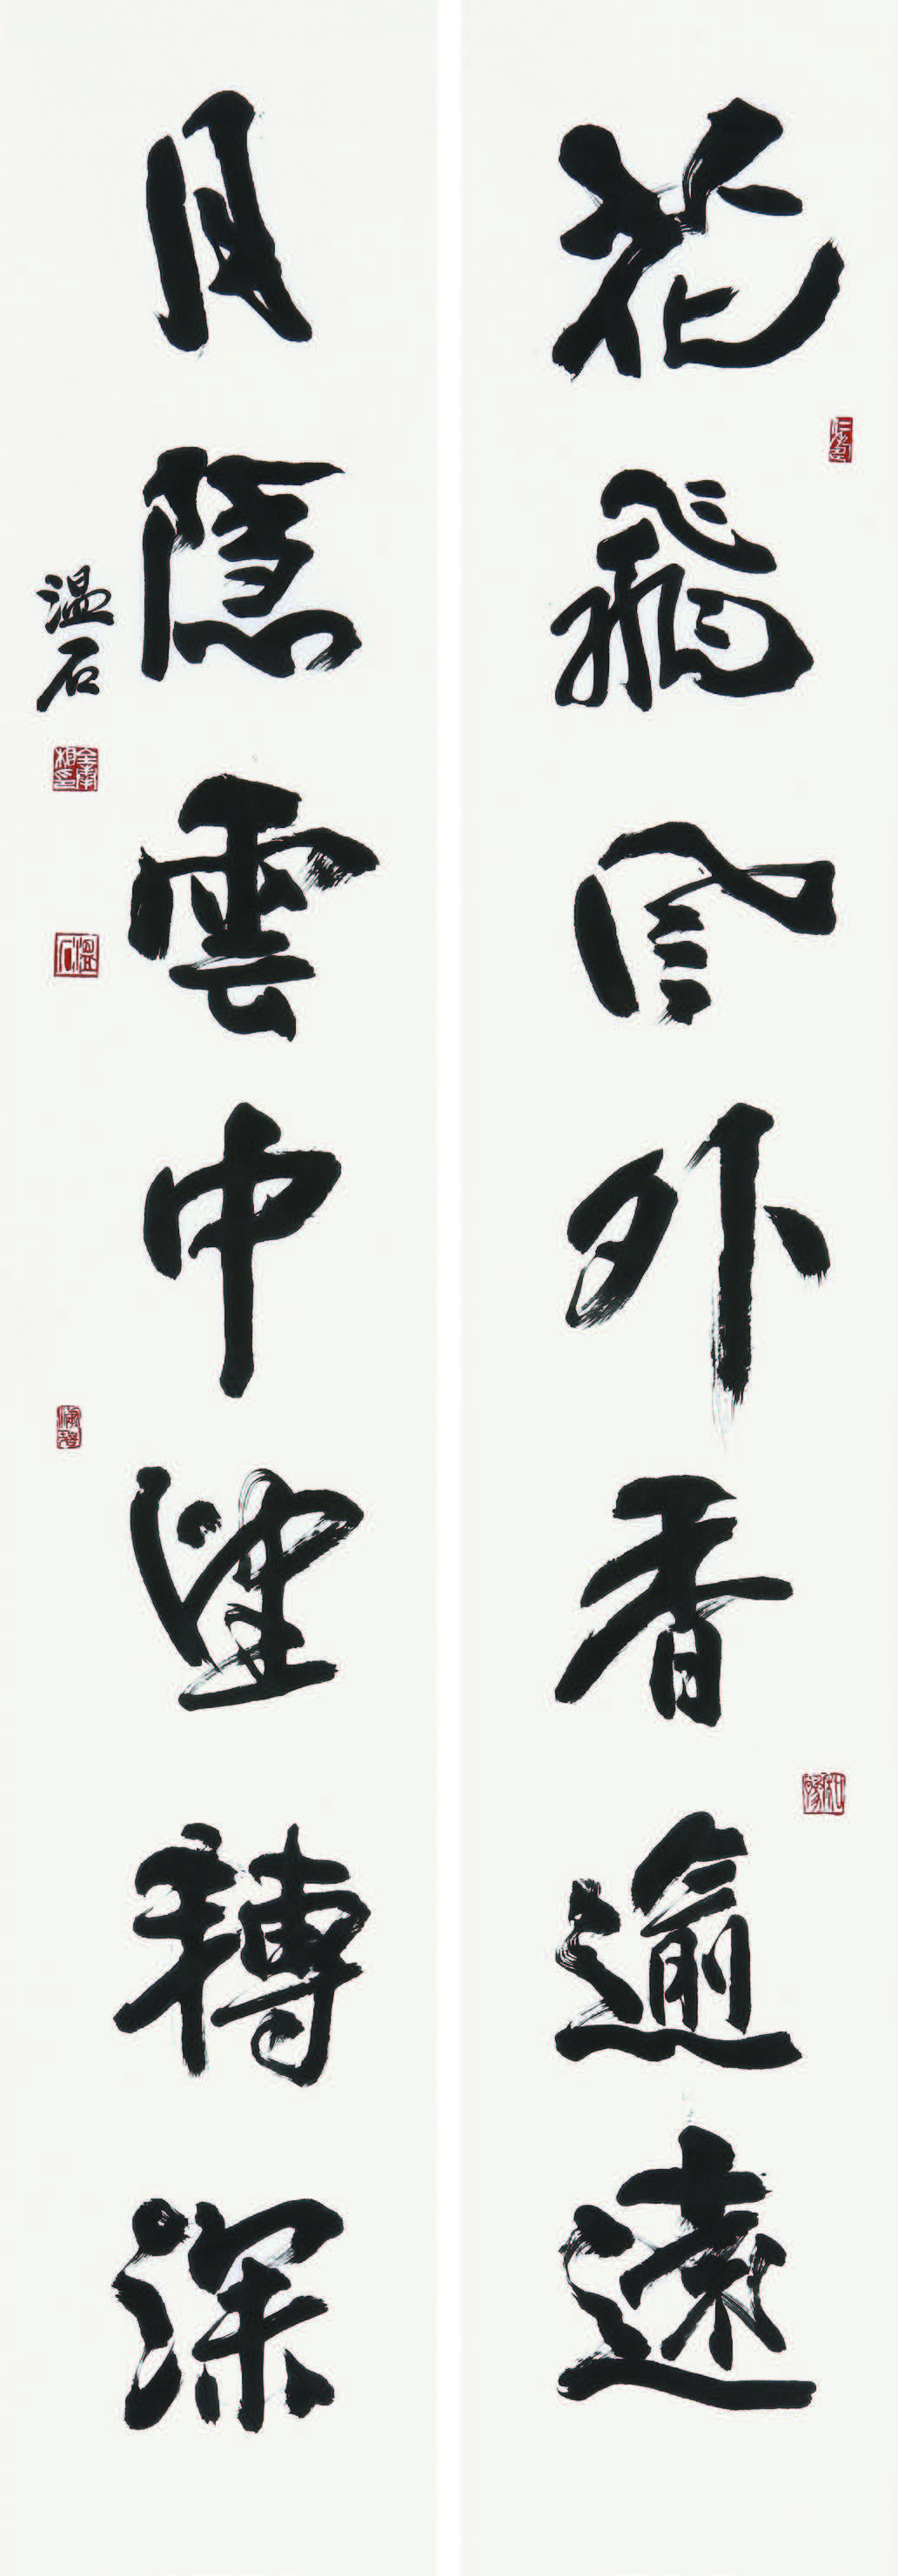 花飛風外香逾遠
月隱雲中望轉深
温石